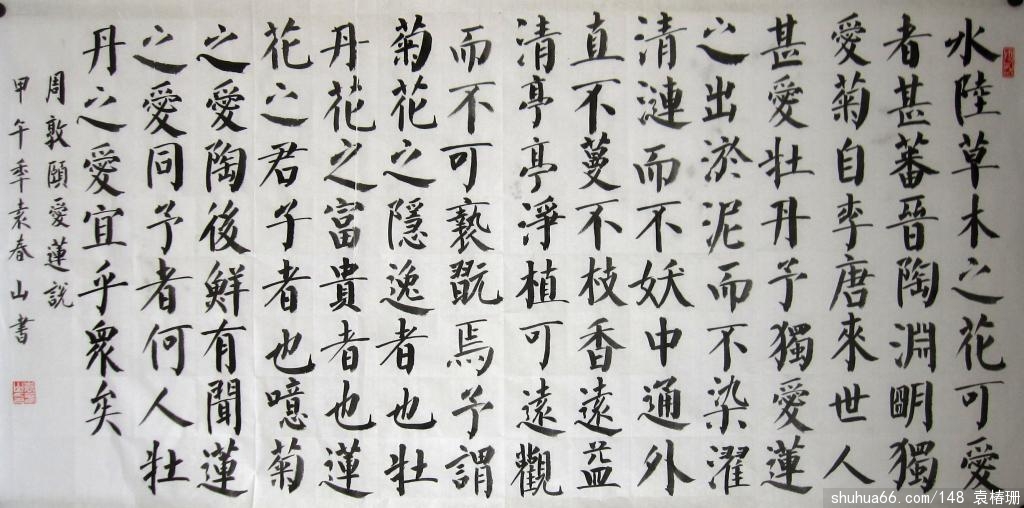 水陸草木之花可愛
者甚蕃晉陶淵明獨
愛菊自李唐來世人
甚愛牡丹予獨愛蓮
之出淤泥而不染濯
清漣而不妖中通外
直不蔓不枝香遠益
清亭亭淨植可遠觀
而不可褻翫焉予謂
菊花之隱逸者也牡
丹花之富貴者也蓮
花之君子者也噫菊
之愛陶後鮮有聞蓮
之愛同予者何人牡
丹之愛宜乎衆矣
周敦頤愛蓮説
甲午季袁春山書
shuhua66.com/148 袁椿珊